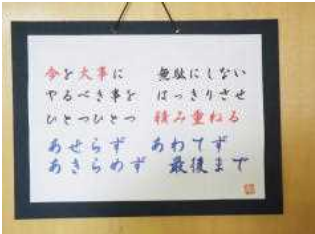 今を大事に　無駄にしない
やるべき事を　はっきりさせ
ひとつひとつ　積み重ねる
あせらず　あわてず
あきらめず　最後まで